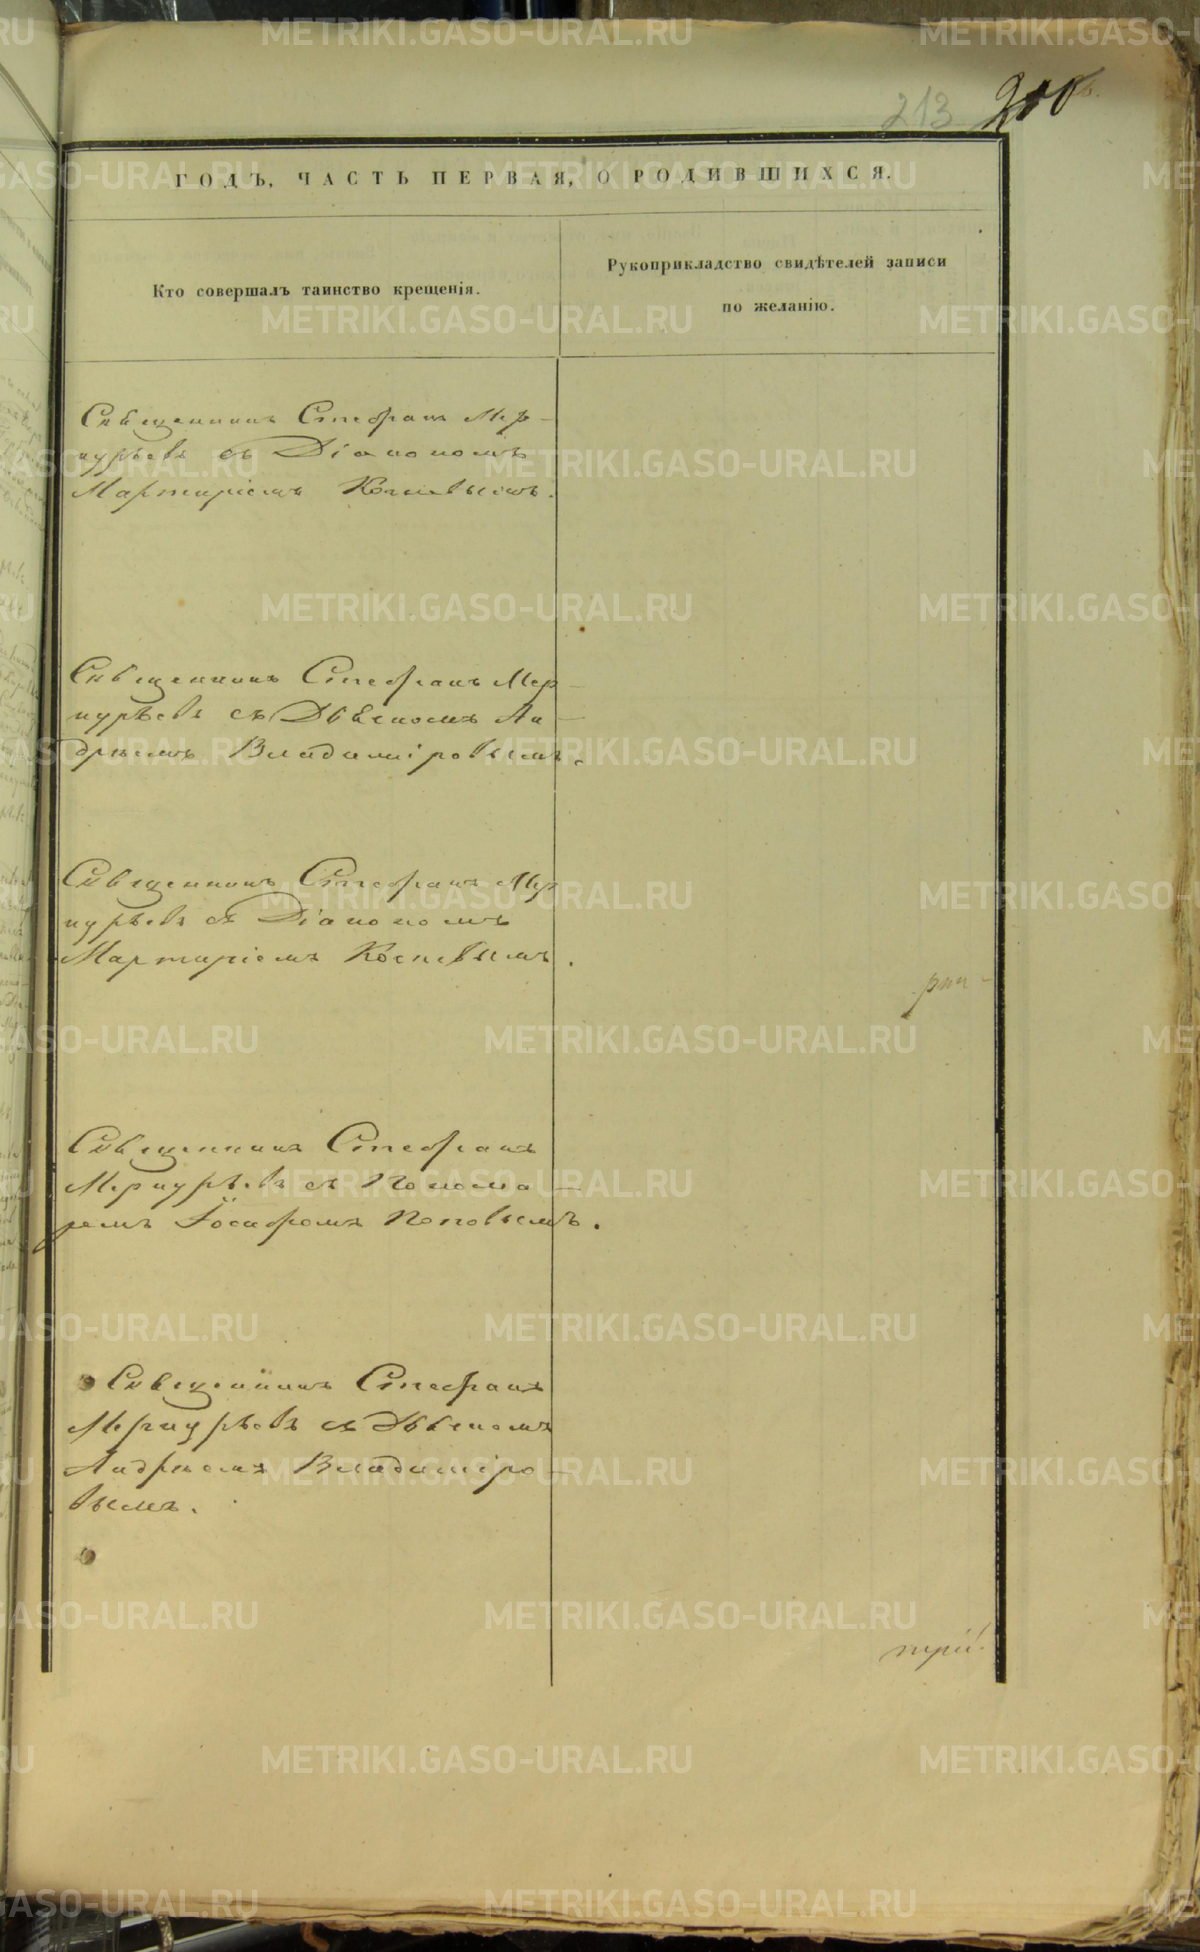 213
ГОДЪ, ЧАСТЬ ПЕРВАЯ, О РОДИВШИХСЯ.
Кто совершалъ таинство крещенія.
Рукоприкладство свидѣтелей записи
по желанію.
Священникъ Стефанъ Мер-
курьевъ съ Діакономъ
Мартиріемъ
Священникъ Стефанъ Мер-
курьевъ съ Дьякономъ Ан-
дреемъ Владиміровымъ.
Священникъ Стефанъ Мер
курьевъ съ Діакономъ
Мартиріемъ
Священникъ Стефанъ
Меркурьевъ съ Понома-
ремъ Іоасафомъ Поповымъ.
Священникъ Стефанъ
Меркурьевъ съ Дьякономъ
Андреемъ Владиміро-
вымъ.
три
METRIKI.GASO-URAL.RU